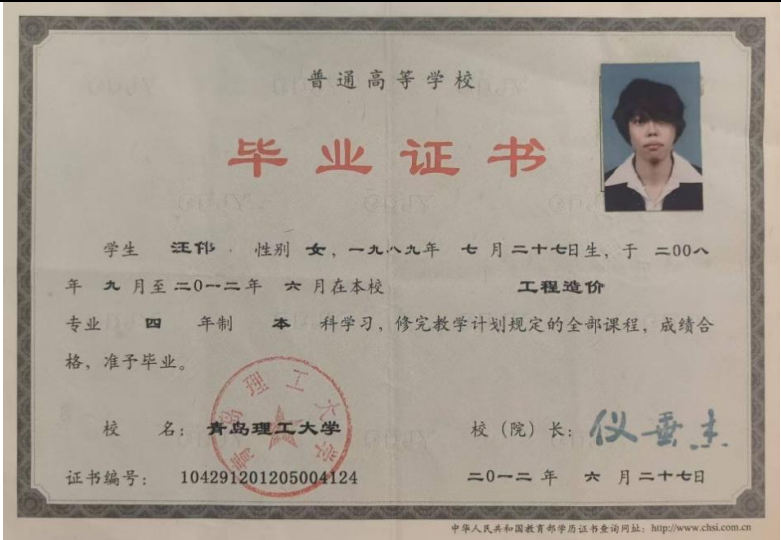 普通高等学校
毕业证书
学生 汪郁 性别 女，一九八九年 七 月 二十七日生，于 二00八
年 九 月至 二0一二年 六 月在本校 工程造价
专业 四 年制 本 科学习，修完教学计划规定的全部课程，成绩合
格，准予毕业。
校 名：青岛理工大学 校（院）长：仪垂杰
青岛理工大学
证书编号：104291201205004124 二0一二 年 六 月 二十七日
中华人民共和国教育部学历证书查询网址：http://www.chsi.com.cn